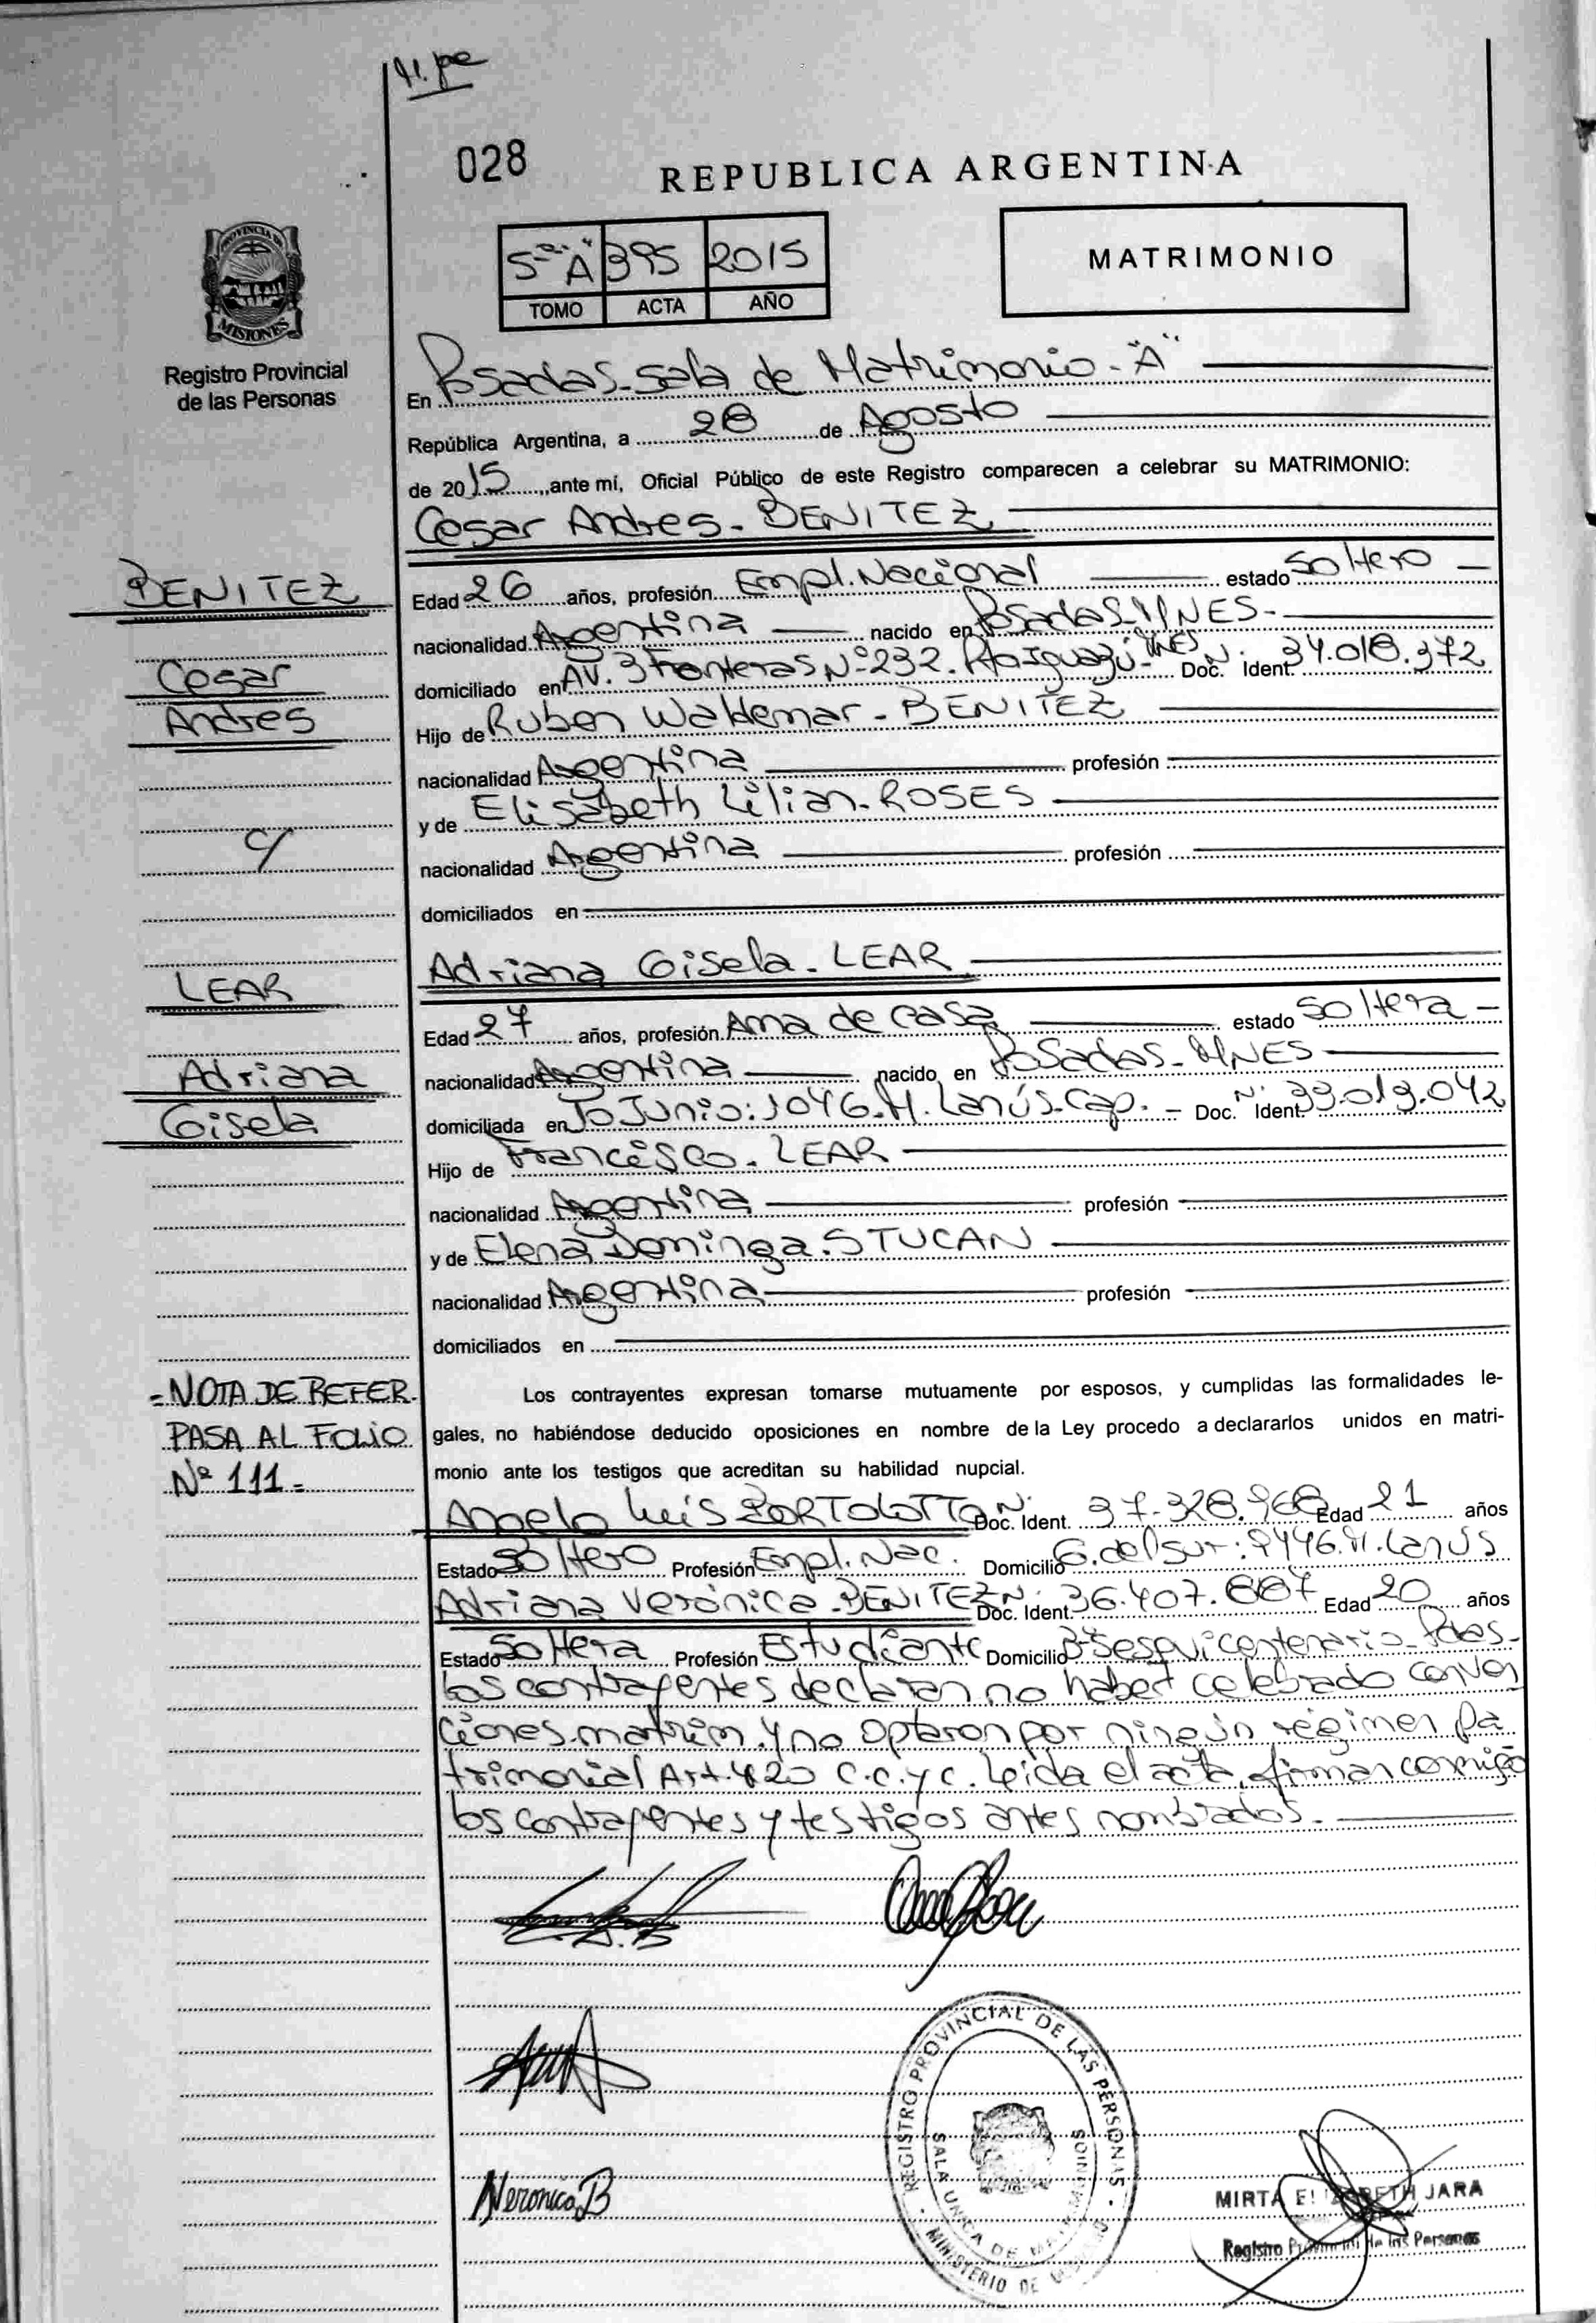 028
REPUBLICA ARGENTINA
PROVINCIA DE
MISIONES
Registro Provincial
de las Personas
5to "A" 395 2015
TOMO ACTA AÑO
MATRIMONIO
En Posadas-Sala de Matrimonio-"A"
República Argentina, a 28 de Agosto
de 2015, ante mí, Oficial Público de este Registro comparecen a celebrar su MATRIMONIO:
Cesar Andres-BENITEZ
BENITEZ
Cesar
Andres
c/
LEAR
Adriana
Gisela
Edad 26 años, profesión Empl. Nacional estado Soltero
nacionalidad Argentina nacido en Posadas-MNES-
domiciliado en AV. 3 Fronteras Nº 232. Pto Iguazú-MNES Doc. N. Ident. 34.018.372
Hijo de Ruben Waldemar-BENITEZ
nacionalidad Argentina profesión
y de Elisabeth Lilian-ROSES
nacionalidad Argentina profesión
domiciliados en
Adriana Gisela-LEAR
Edad 27 años, profesión Ama de casa estado Soltera
nacionalidad Argentina nacido en Posadas-MNES
domiciliada en 10 Junio: 1046. M. Lanús-Cap. Doc. N. Ident. 33.019.042
Hijo de Francisco-LEAR
nacionalidad Argentina profesión
y de Elena Dominga-STUCAN
nacionalidad Argentina profesión
domiciliados en
-NOTA DE REFER.
PASA AL FOLIO
Nº 111-
Los contrayentes expresan tomarse mutuamente por esposos, y cumplidas las formalidades le-
gales, no habiéndose deducido oposiciones en nombre de la Ley procedo a declararlos unidos en matri-
monio ante los testigos que acreditan su habilidad nupcial.
Angelo Luis BORTOLOTTO N. Doc. Ident. 37.328.968 Edad 21 años
Estado Soltero Profesión Empl. Nac. Domicilio G. del sur: 9446. M. Lanús
Adriana Verónica-BENITEZ N. Doc. Ident. 36.407.887 Edad 20 años
Estado Soltera Profesión Estudiante Domicilio Bº Sesquicentenario-Pdas-
Los contrayentes declaran no haber celebrado conven
ciones matrim. y no optaron por ningún régimen pa
trimonial Art. 420 C.C. y C. Leída el acta, firman conmigo
los contrayentes y testigos antes nombrados-
Veronica B
REGISTRO PROVINCIAL DE LAS PERSONAS
SALA UNICA DE MATRIMONIOS
MINISTERIO DE
MIRTA ELIZABETH JARA
Registro Provincial de las Personas